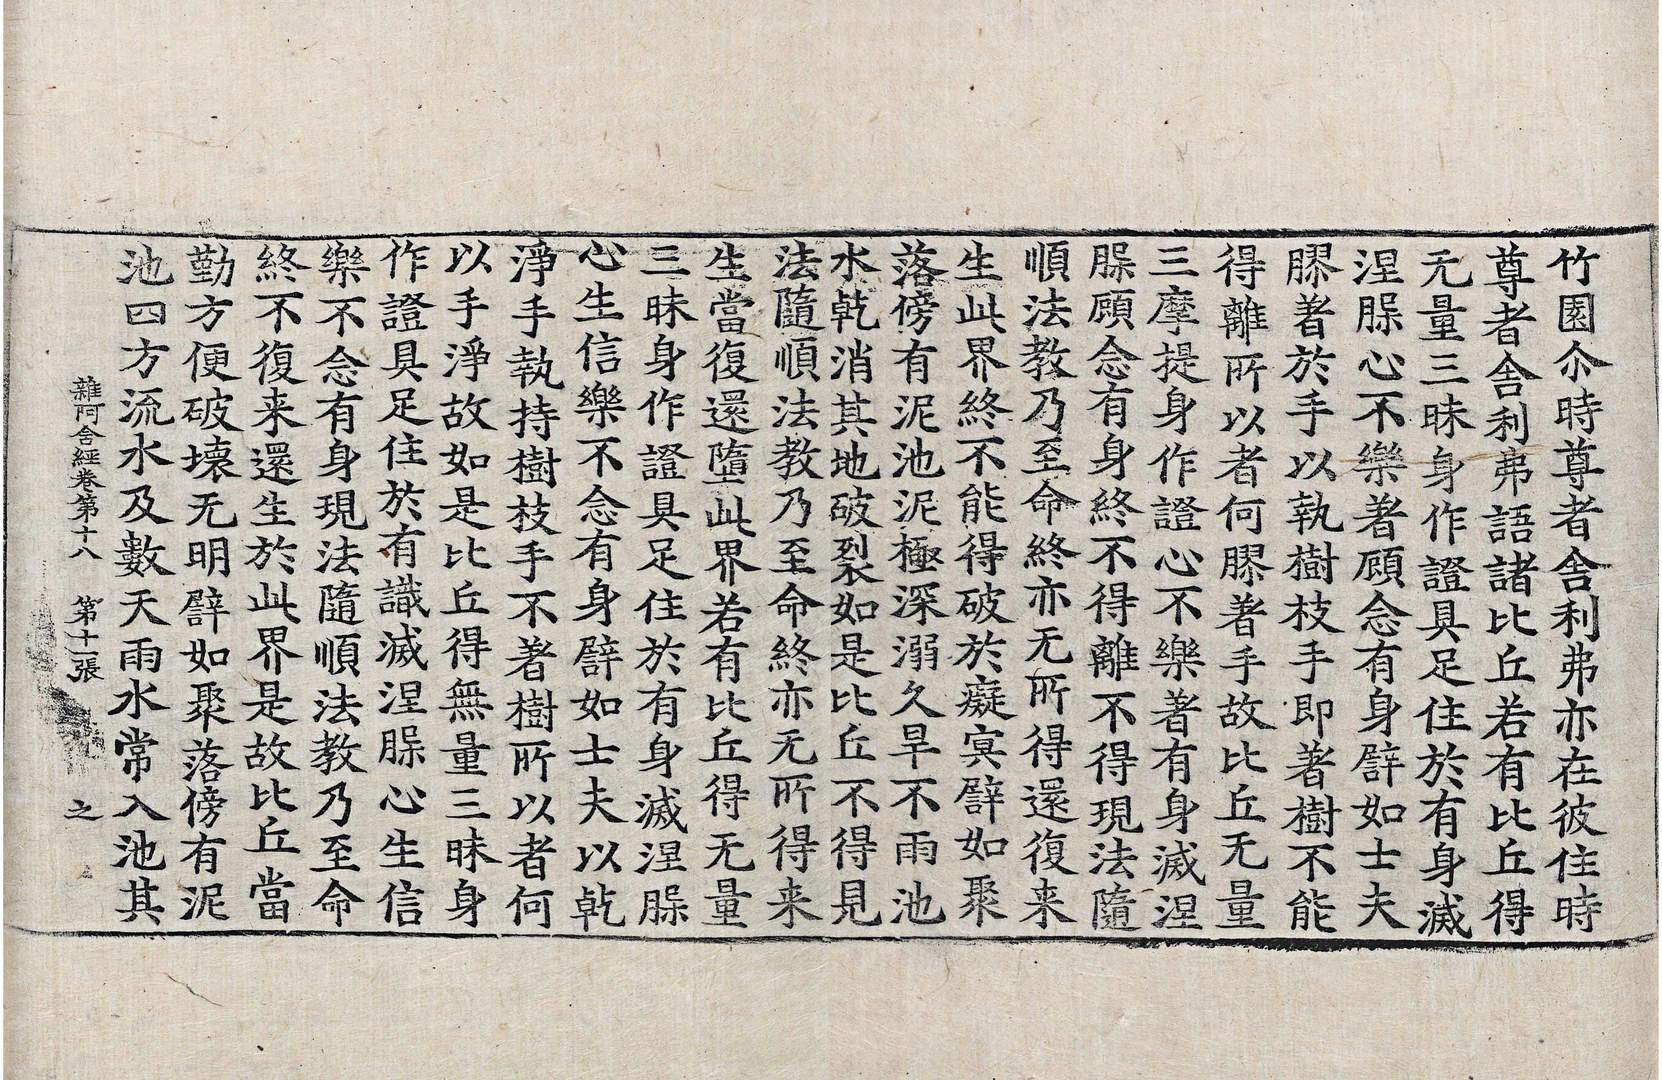 竹園尒時尊者舎利弗亦在彼住時
尊者舎利弗語諸比丘若有比丘得
无量三昧身作證具足住於有身滅
涅槃心不樂著顧念有身譬如士夫
膠著於手以執樹枝手即著樹不能
得離所以者何膠著手故比丘无量
三摩提身作證心不樂著有身滅涅
槃顧念有身終不得離不得現法隨
順法教乃至命終亦无所得還復来
生此界終不能得破於癡冥譬如聚
落傍有泥池泥極深溺久旱不雨池
水乾消其地破裂如是比丘不得見
法隨順法教乃至命終亦无所得来
生當復還墮此界若有比丘得无量
三昧身作證具足住於有身滅涅槃
心生信樂不念有身譬如士夫以乾
淨手執持樹枝手不著樹所以者何
以手淨故如是比丘得無量三昧身
作證具足住於有識滅涅槃心生信
樂不念有身現法隨順法教乃至命
終不復来還生於此界是故比丘當
勤方便破壞无明譬如聚落傍有泥
池四方流水及數天雨水常入池其
雜阿含經卷第十八 第十一張 之